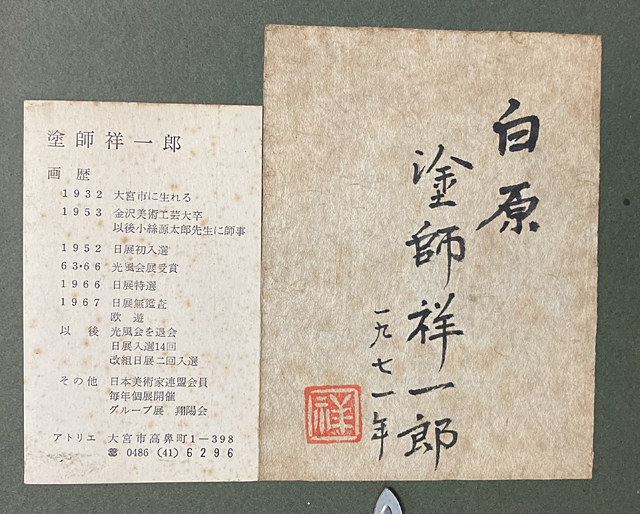 塗師祥一郎
画歴
1932 大宮市に生れる
1953 金沢美術工芸大卒
以後小絲源太郎先生に師事
1952 日展初入選
63・66 光風会展受賞
1966 日展特選
1967 日展無鑑査
欧遊
以後 光風会を退会
日展入選14回
改組日展二回入選
その他 日本美術家連盟会員
毎年個展開催
グループ展 翔陽会
アトリエ 大宮市高鼻町1―398
☎ 0486 (41) 6296
白原
塗師祥一郎
一九七一年
祥